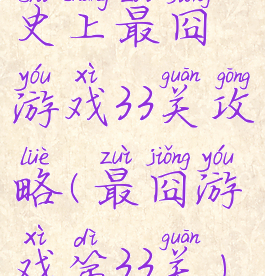 shǐ shàng zuì jiǒng
史上最囧
yóu xì guān gōng
游戏33关攻
lüè zuì jiǒng yóu
略(最囧游
xì dì guān
戏第33关)